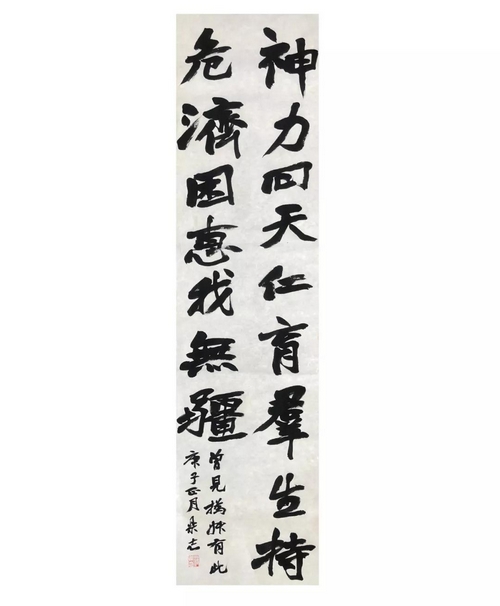 神力回天仁育羣生持
危濟困惠我無疆
曾見撝叔有此
庚子正月志